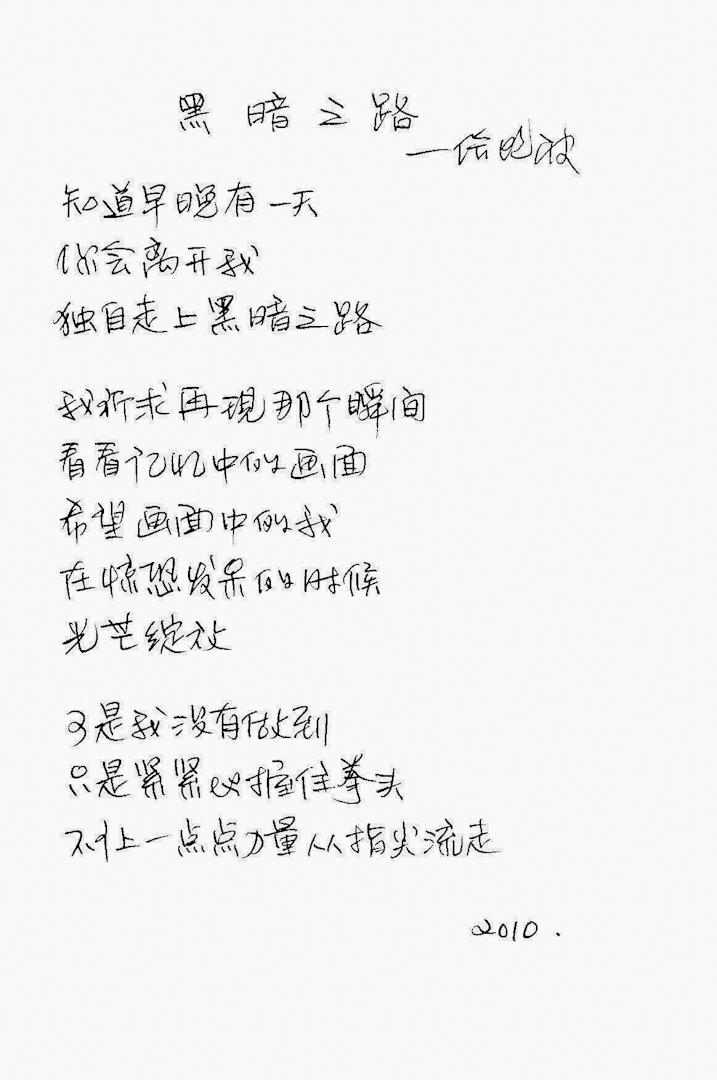 黑暗之路
——给晓波
知道早晚有一天
你会离开我
独自走上黑暗之路
我祈求再现那个瞬间
看看记忆中的画面
希望画面中的我
在惊恐发呆的时候
光芒绽放
可是我没有做到
只是紧紧地握住拳头
不让一点点力量从指尖流走
2010.